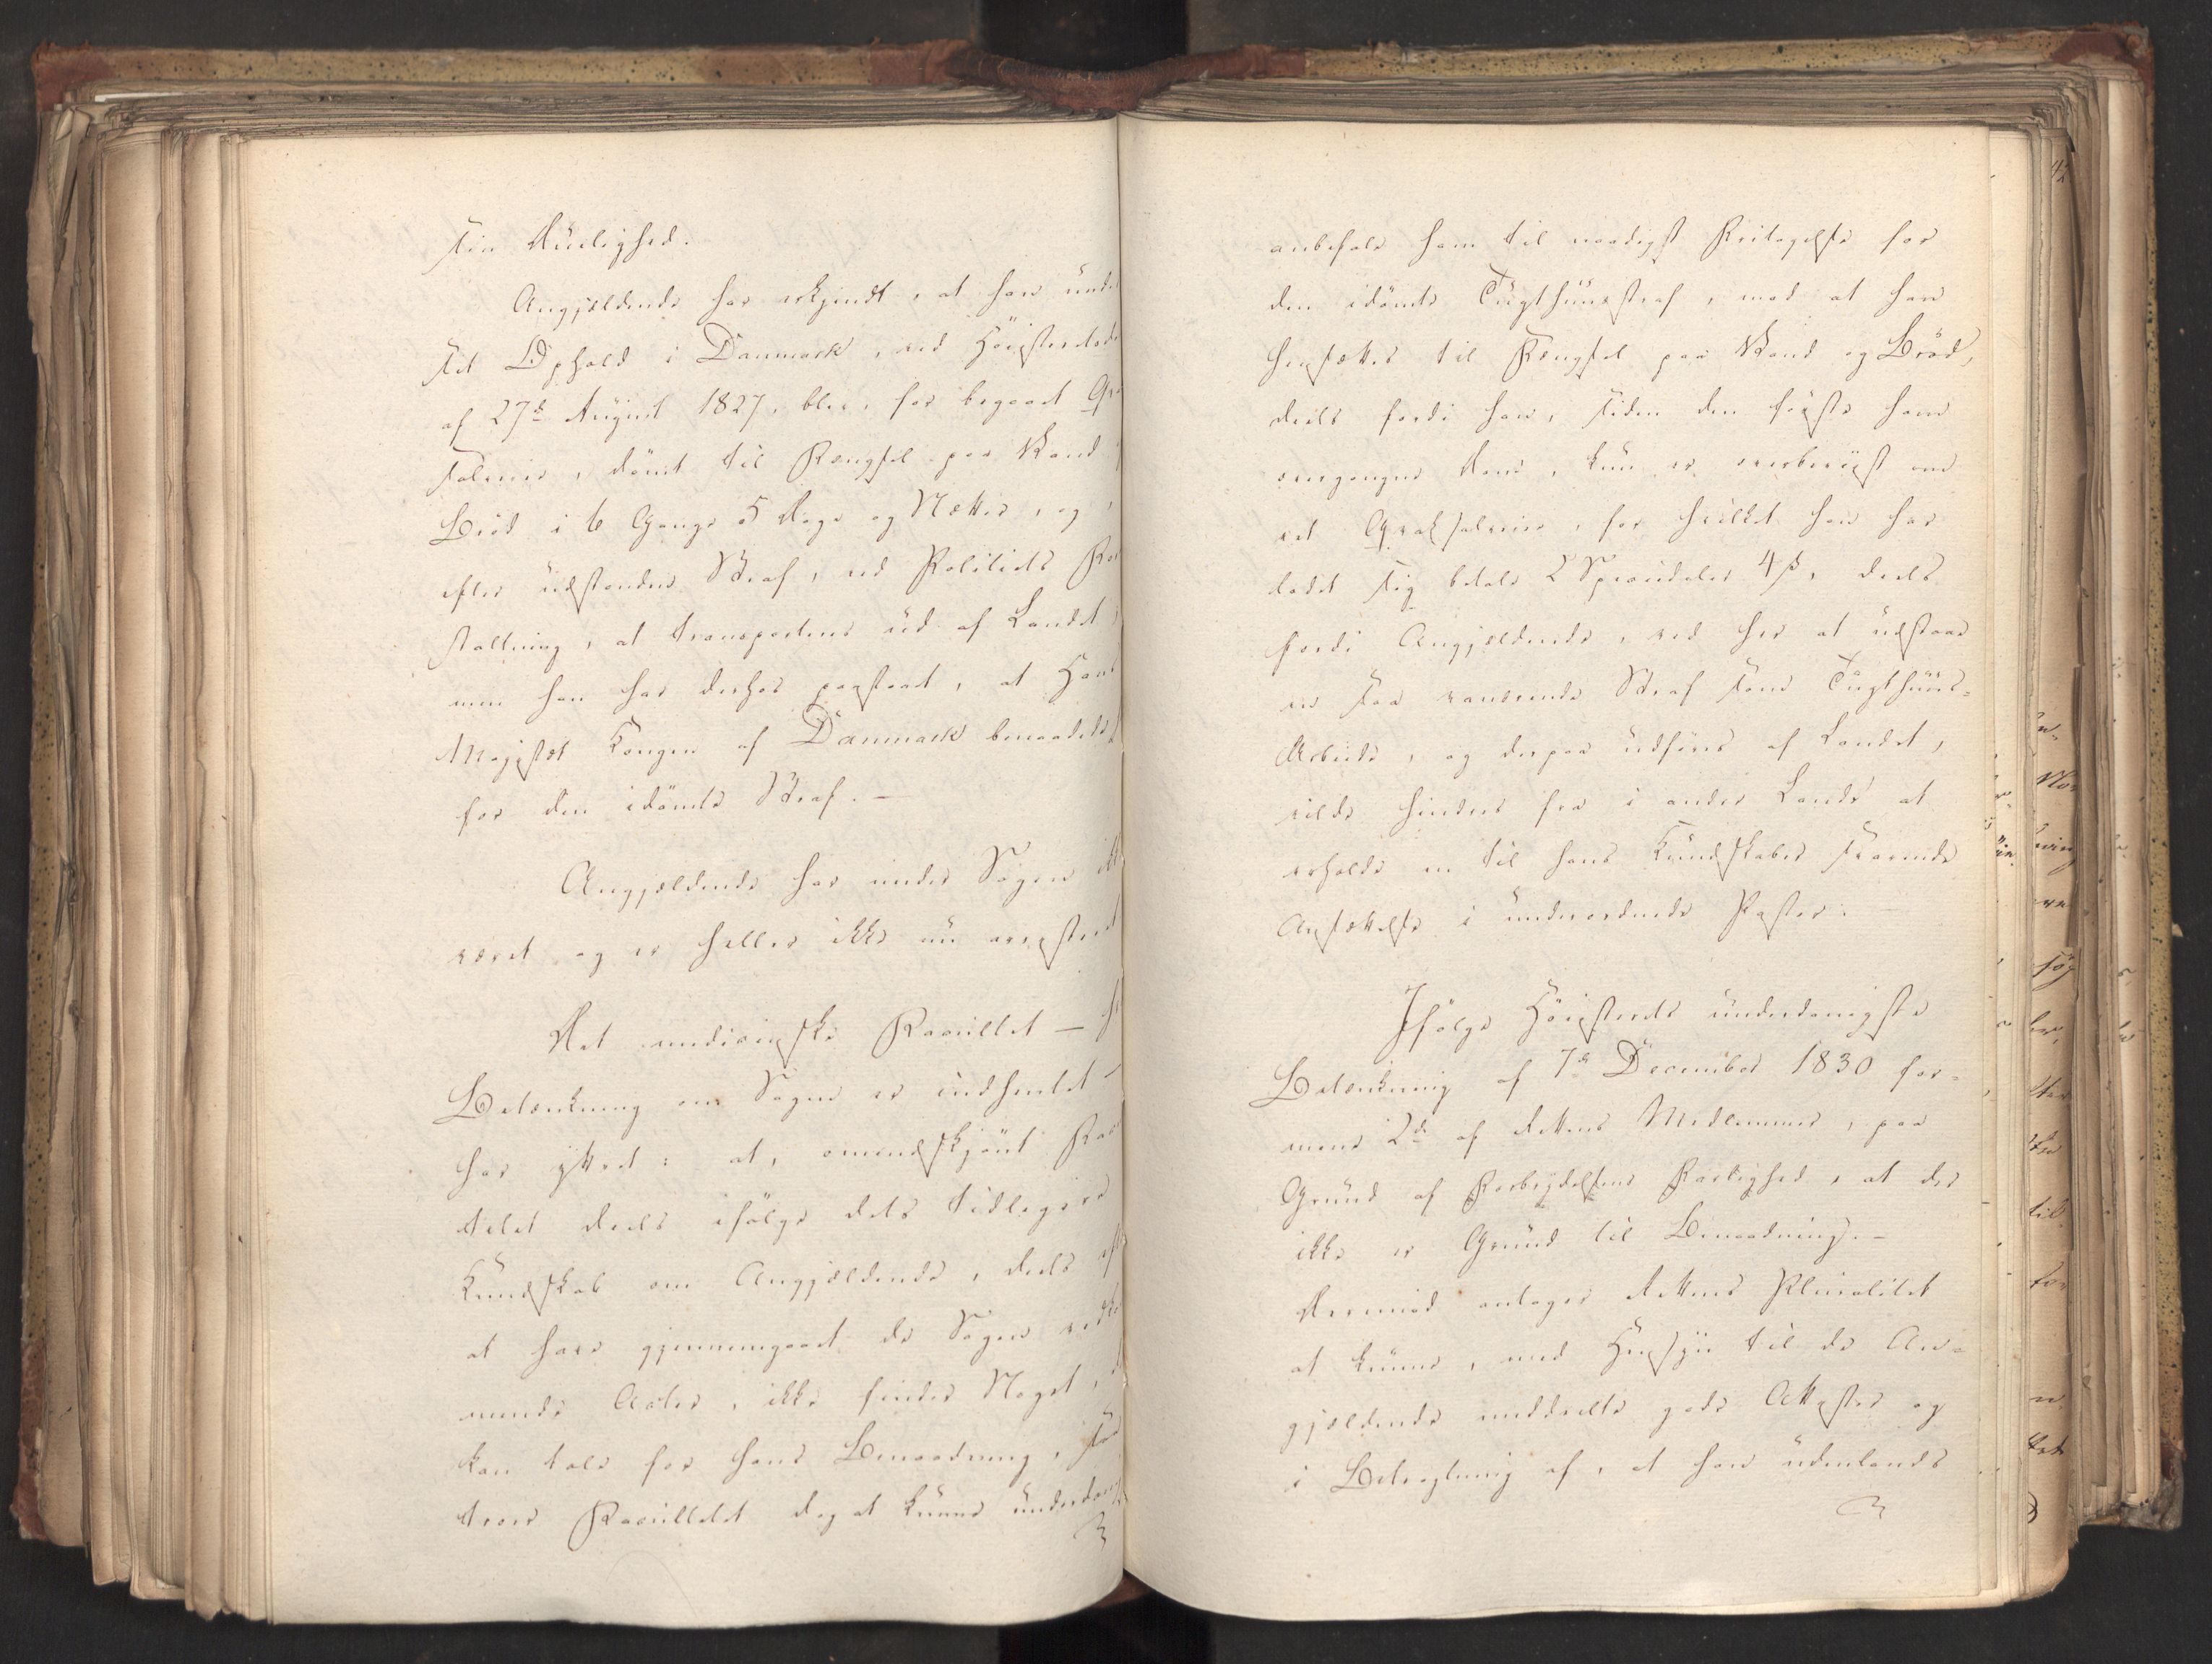 sin Duelighed.
Angjældende har erkjendt, at han unde
sit Ophold i Danmark, ved Höiesteretsdo
af 27de August 1827, blev, for begaaet Qva
salverie, dömt til Fængsel paa Vand
Bröd i 6 Gange 5 Dage og Nætter, og,
efter udstanden Straf, ved Politiets For
staltning, at transporteres ud af Landet,
men han har derhos paastaaet, at Hans
Majestæt Kongen af Danmark benaadede
for den idömte Straf. —
Angjældende har under Sagen ikk
været og er heller ikke nu arresteret
Det medicinske Facultet — h
Betænkning om Sagen er indhentet —
har yttret: at, omendskjönt Facu
tetet deels ifölge dets tidligere
Kundskab om Angjældende, deels eft
at have gjennemgaaet de Sagen vedko
mende Acter, ikke finder Noget, d
kan tale for hans Benaadning, saa
troer Facultetet dog at kunne underdan
anbefale ham til naadigst Fritagelse for
den idömte Tugthuusstraf, mod at han
hensættes til Fængsel paa Vand og Bröd,
deels fordi han, siden den første ham
overgangne Dom, kun er overbeviist om
eet Qvaksalverie, for hvilket han har
ladet sig betale 2 Speciedaler 4 ß, deels
fordi Angjældende, ved her at udstaae
en saa vanærende Straf som Tugthuus-
Arbeide, og derpaa udföres af Landet,
vilde hindres fra i andre Lande at
erholde en til hans Kundskaber svarende
Ansættelse i underordnede Poster. —
Ifölge Höiesterets underdanigste
Betænkning af 7de December 1830 for-
mene 2de af Rettens Medlemmer, paa
Grund af Forbrydelsens Farlighed, at der
ikke er Grund til Benaadning. —
Derimod antager Rettens Pluralitet
at kunne, med Hensyn til de An-
gjældende meddeelte gode Attester og
i Betragtning af, at han udenlands